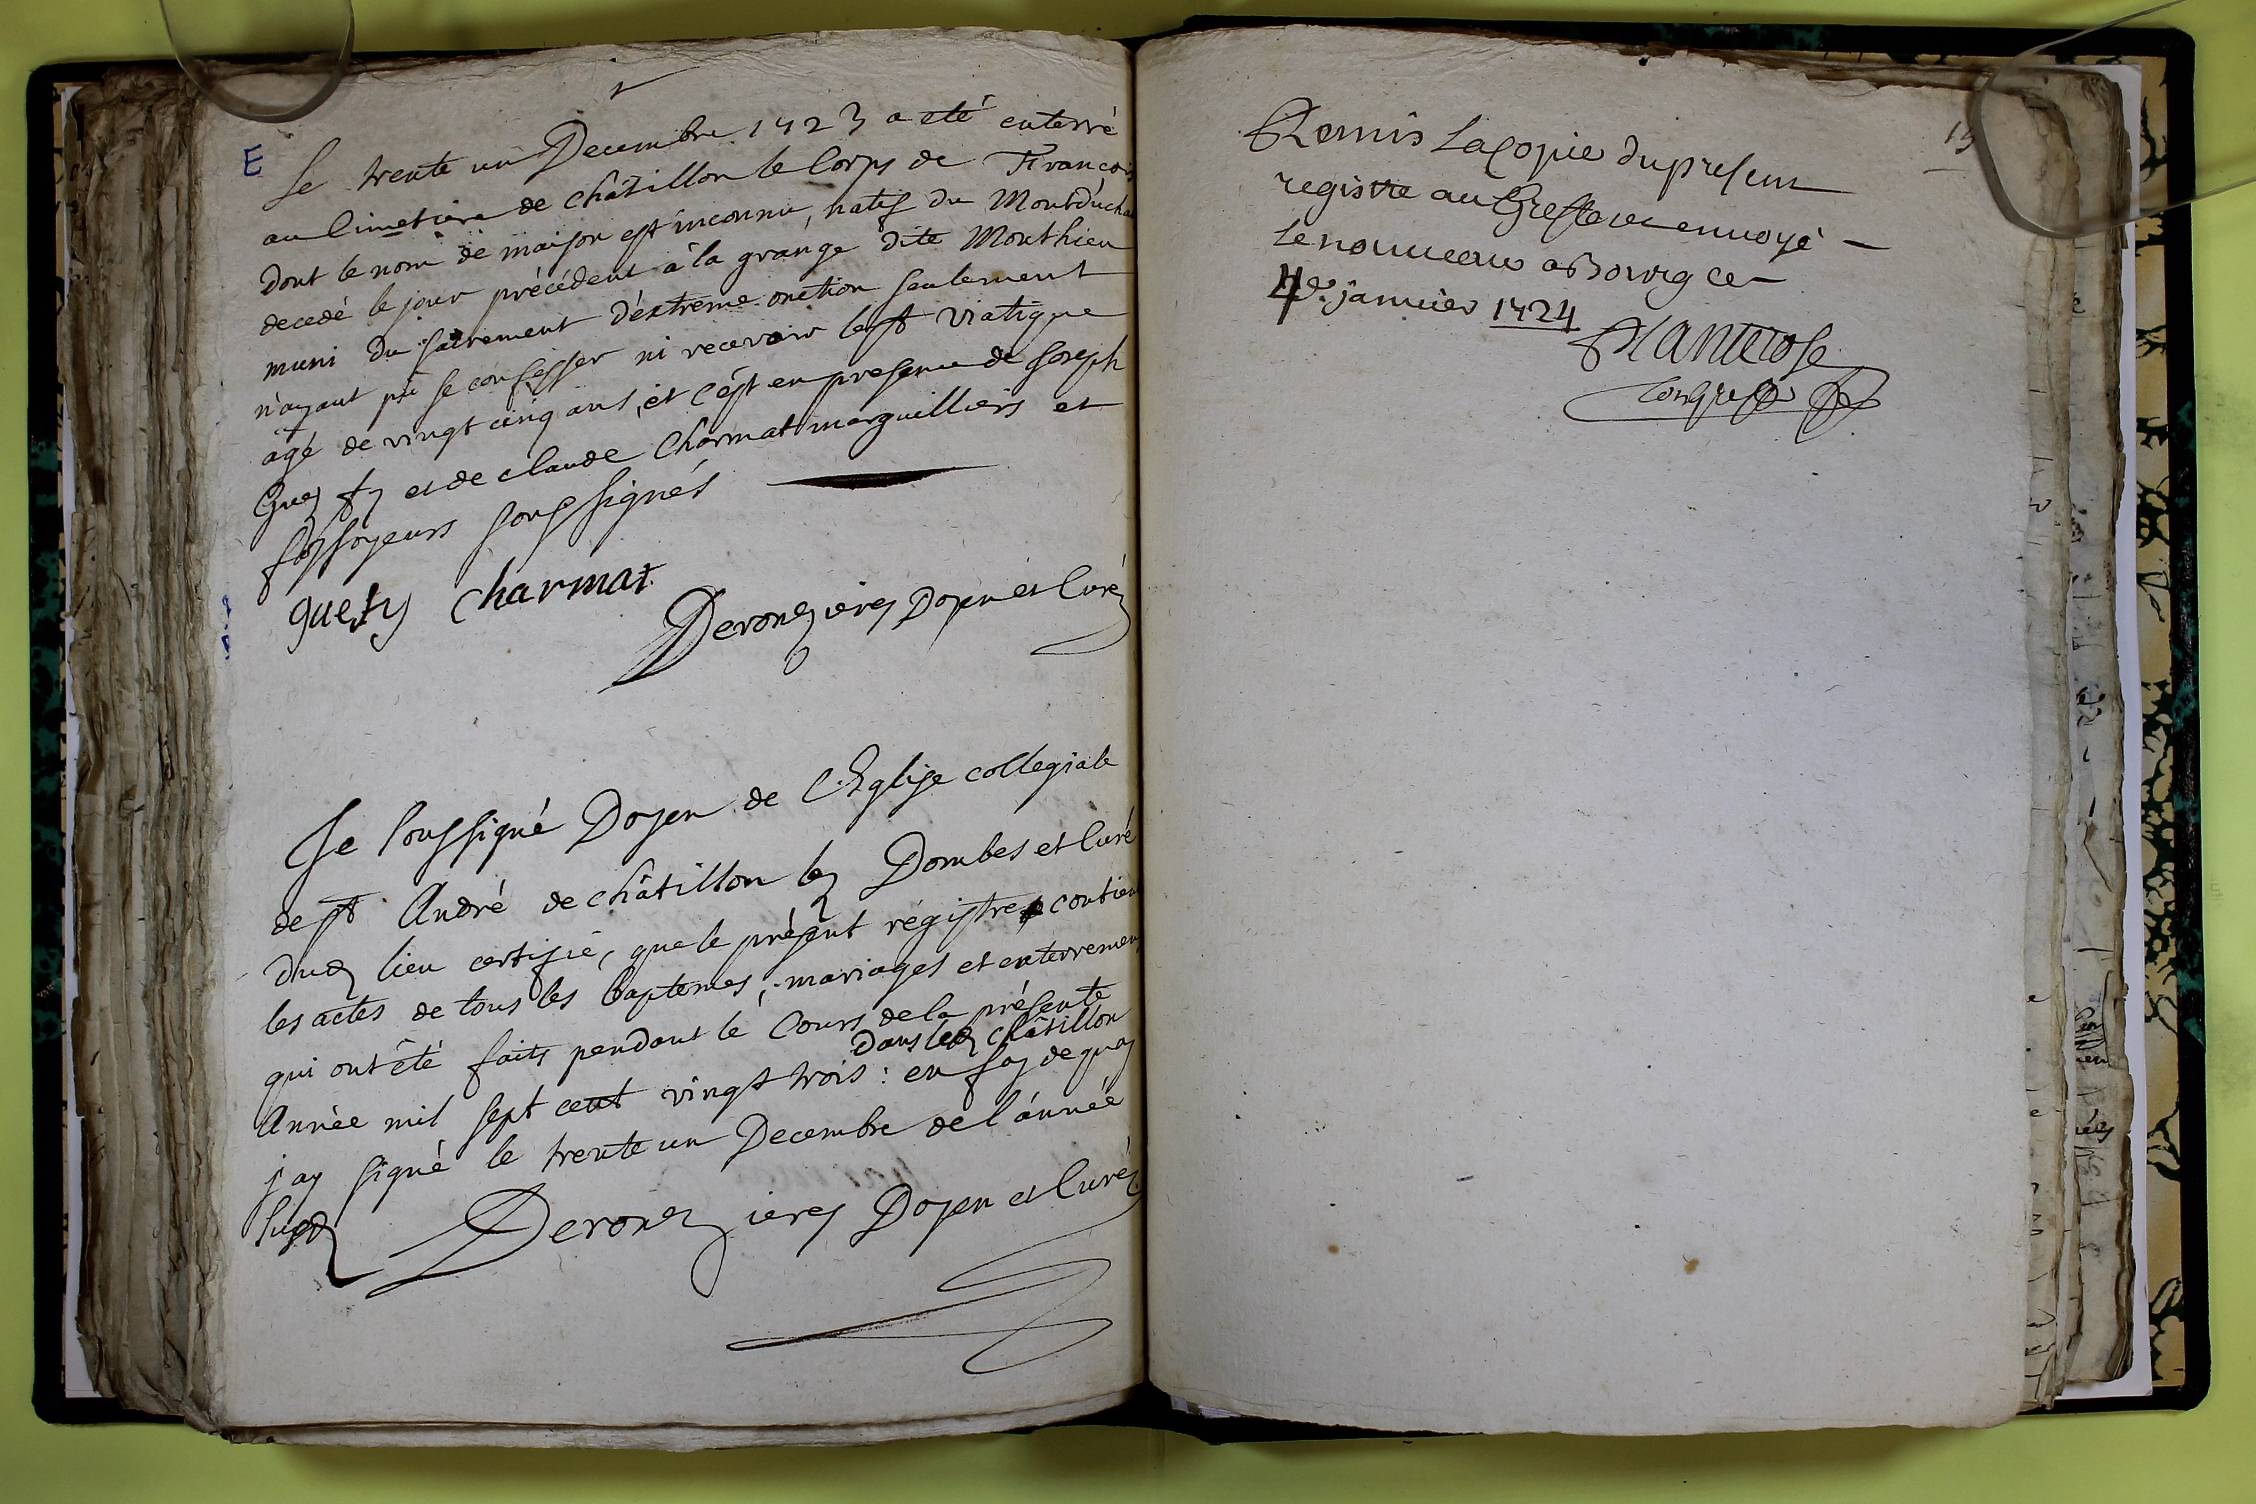 E
Le trente un Decembre 1723 a eté enterré
au Cimetiere de châtillon le Corps de Francois
Dont le nom de maison est inconnu, natif du
decedé le jour précédent à la grange dite Monthieu
muni du sacrement d'éxtreme onction seulement
n'ayant pû se confesser ni recevoir le st viatique
âgé de vingt cinq ans, et c'est en presence de Joseph
et de claude Charmat marguilliers et
fossoyeurs soussignés
Charmat
Deronzieres Doyen et Curé
Je soussigné Doyen de l'Eglise collegiale
de st André de châtillon lez Dombes et Curé
dud lieu certifie, que le présent régistre contient
les actes de tous les baptemes, mariages et enterremen
qui ont été faits pendant le Cours de la présente
dans led châtillon
Année mil sept cent vingt trois : en foy de quoy
j'ay signé le trente un Decembre de l'année
susd Deronzieres Doyen et Curé
15
Remis la Copie du present
registre au Greffe et envoyé
le nouveau a Bourg ce
4e. janvier 1724